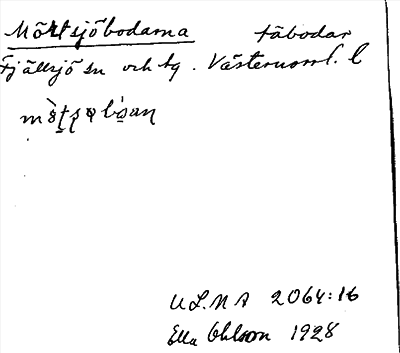 Mörtsjöbodarna fäbodar
Fjällsjö sn och tg. Västernorrl. l
ULMA 2064:16
Ella Ohlson 1928